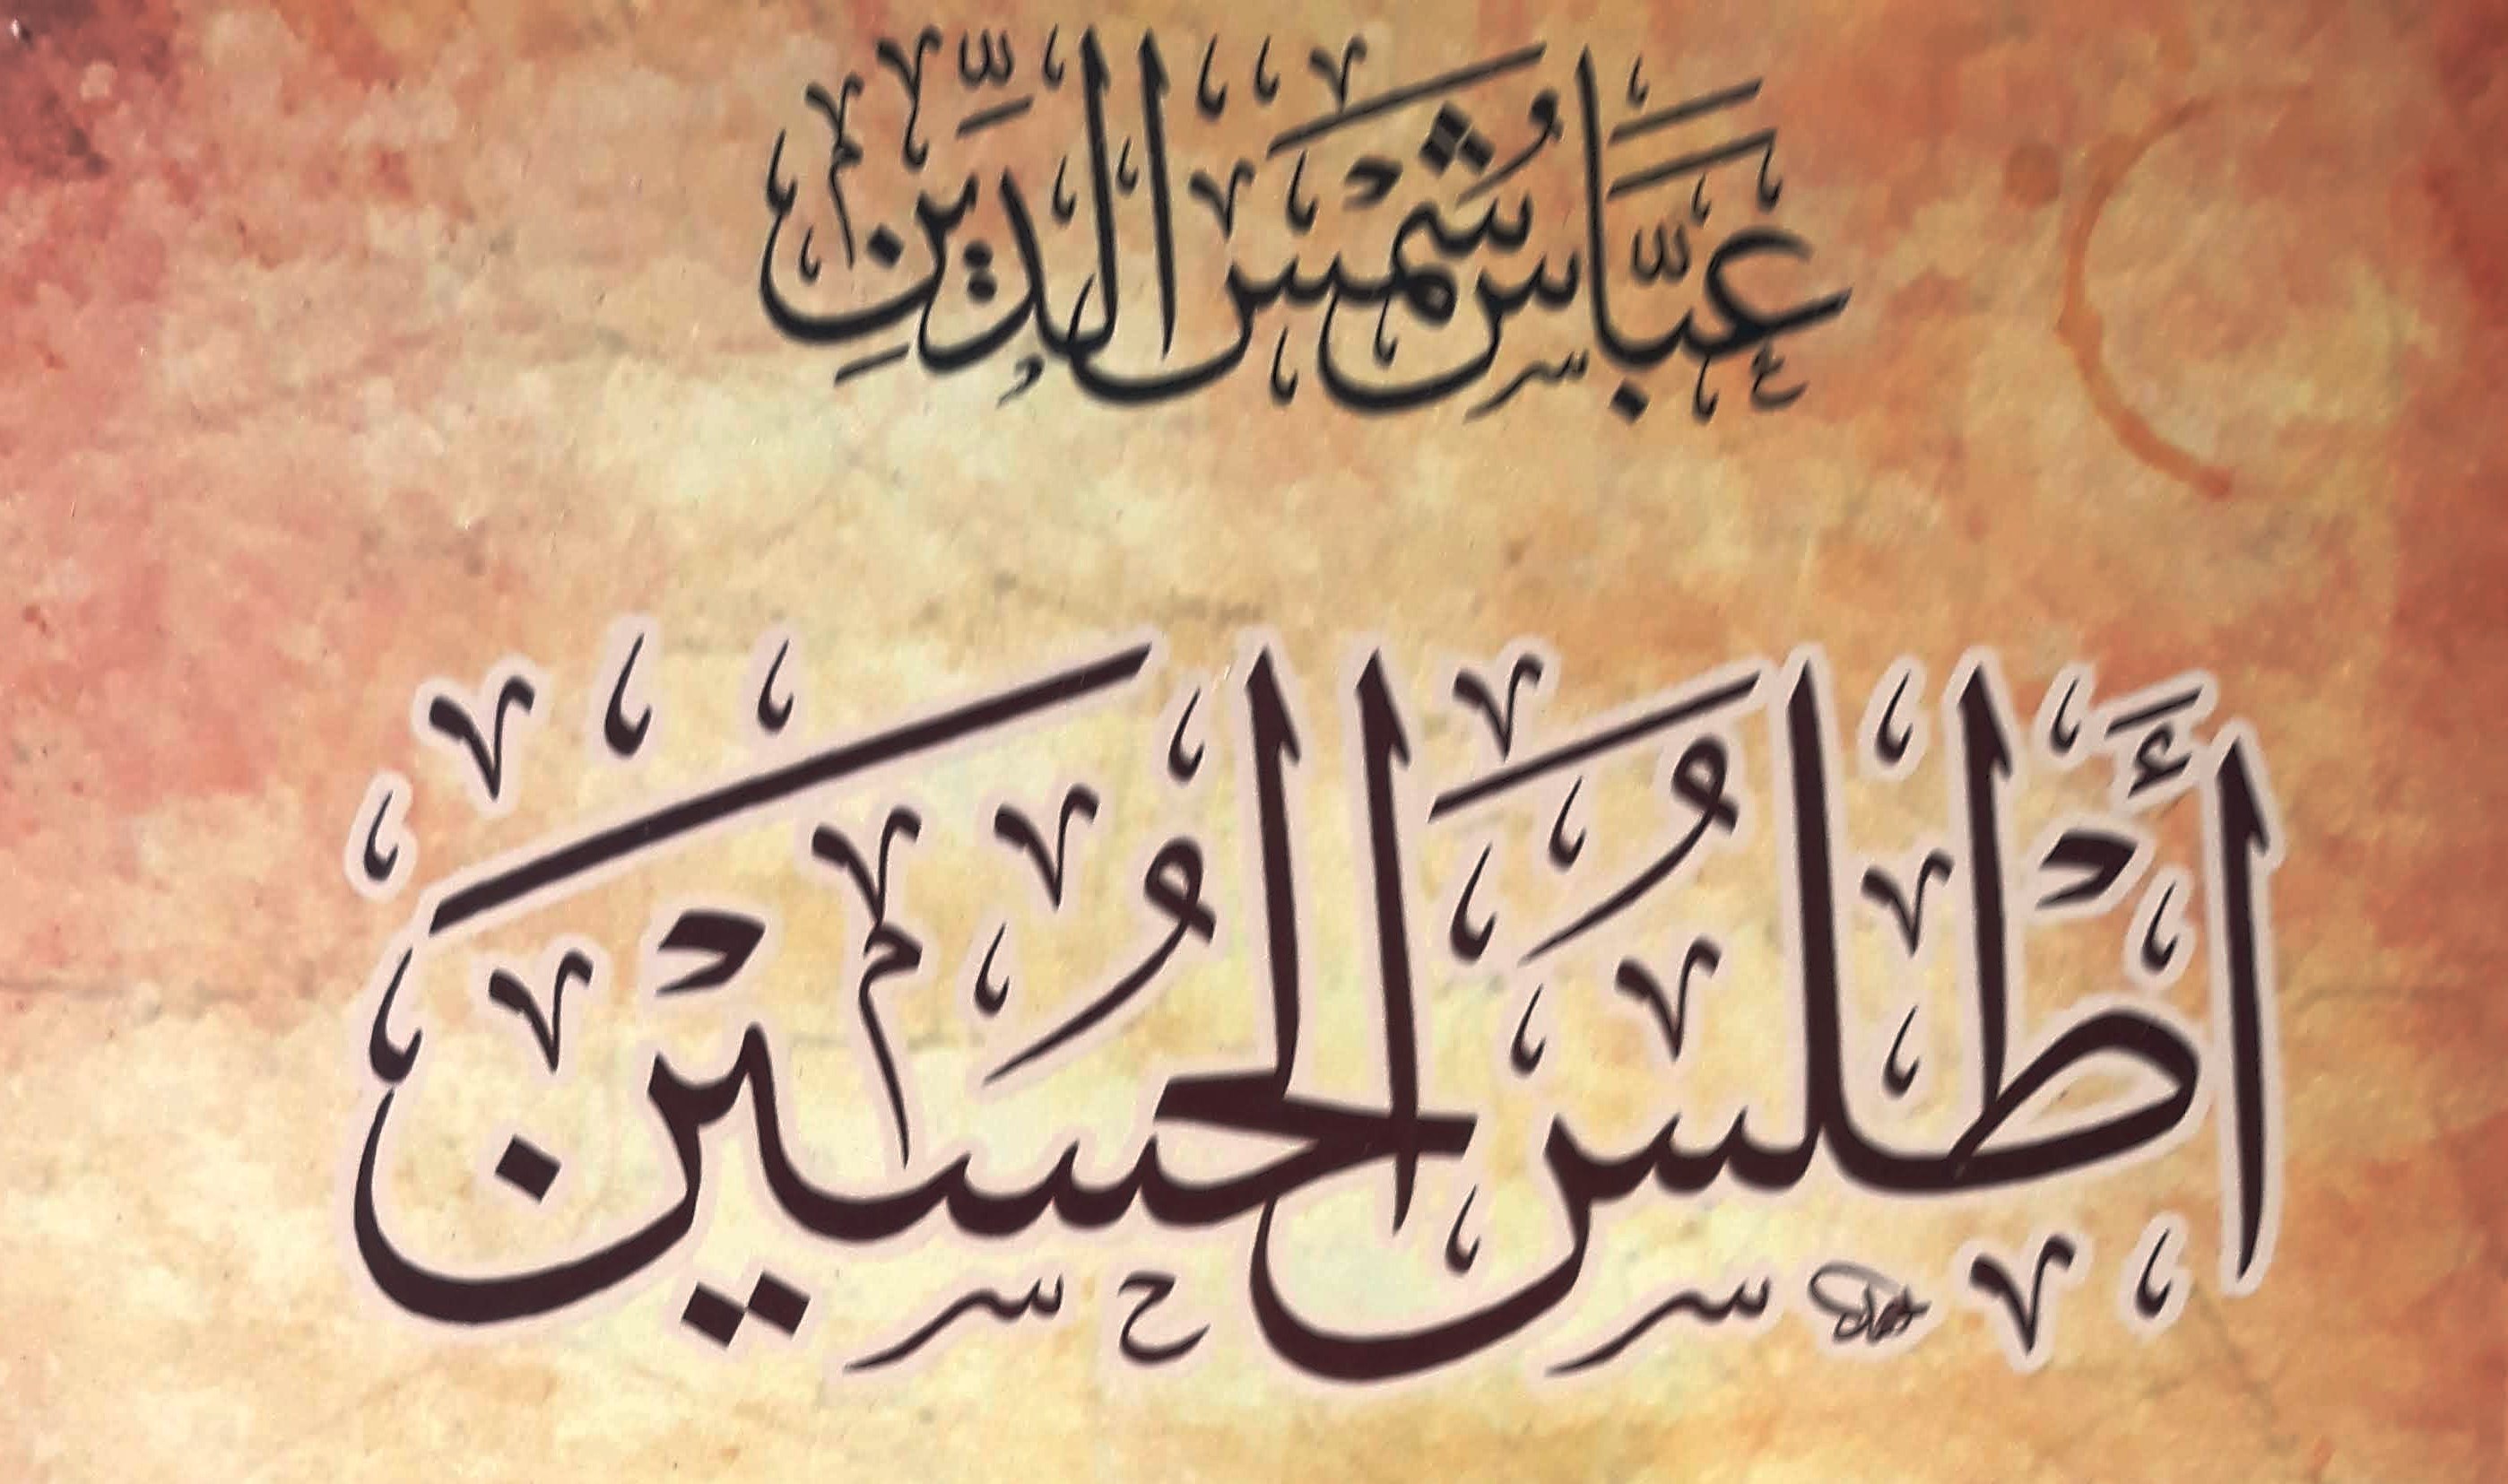 عَبَّاس شَمْسُ الدِّينِ
أَطْلَسُ الحُسَيْنَ